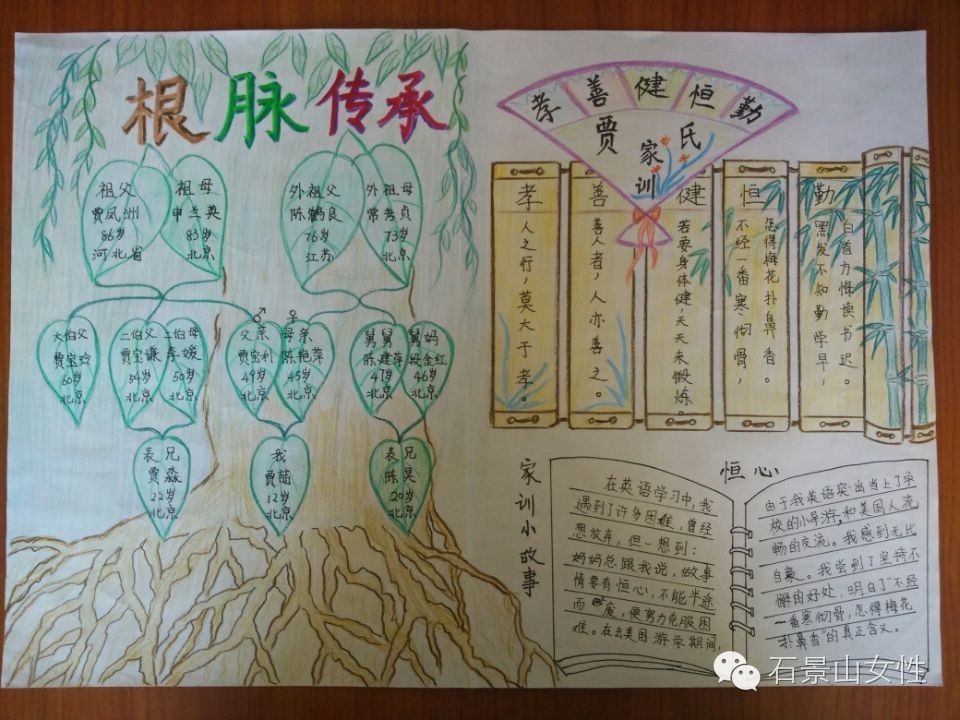 根脉传承
祖父
贾凤洲
86岁
河北省
祖母
申兰英
83岁
北京
外祖父
陈鹤良
76岁
江苏
外祖母
常秀贞
73岁
北京
大伯父
贾宝玲
60岁
北京
二伯父
贾宝谦
54岁
北京
二伯母
李媛
50岁
北京
♂
父亲
贾宝利
49岁
北京
♀
母亲
陈艳萍
45岁
北京
舅舅
陈建萍
47岁
北京
舅妈
段金红
46岁
北京
表兄
贾淼
22岁
北京
我
贾喆
12岁
北京
表兄
陈昊
20岁
北京
孝善健恒勤
贾氏
家训
孝
人之行，莫大于孝。
善
善人者，人亦善之。
健
若要身体健，天天来锻炼。
恒
不经一番寒彻骨，
怎得梅花扑鼻香。
勤
黑发不知勤学早，
白首方悔读书迟。
家训小故事
恒心
在英语学习中，我
遇到了许多困难，曾经
想放弃。但一想到：
妈妈总跟我说，做事
情要有恒心，不能半途
而废，便努力克服困
难。在去美国游学期间，
由于我英语突出当上了学
校的小导游，和美国人流
畅的交流。我感到无比
自豪。我尝到了坚持不
懈的好处，明白了“不经
一番寒彻骨，怎得梅花
扑鼻香”的真正含义。
石景山女性